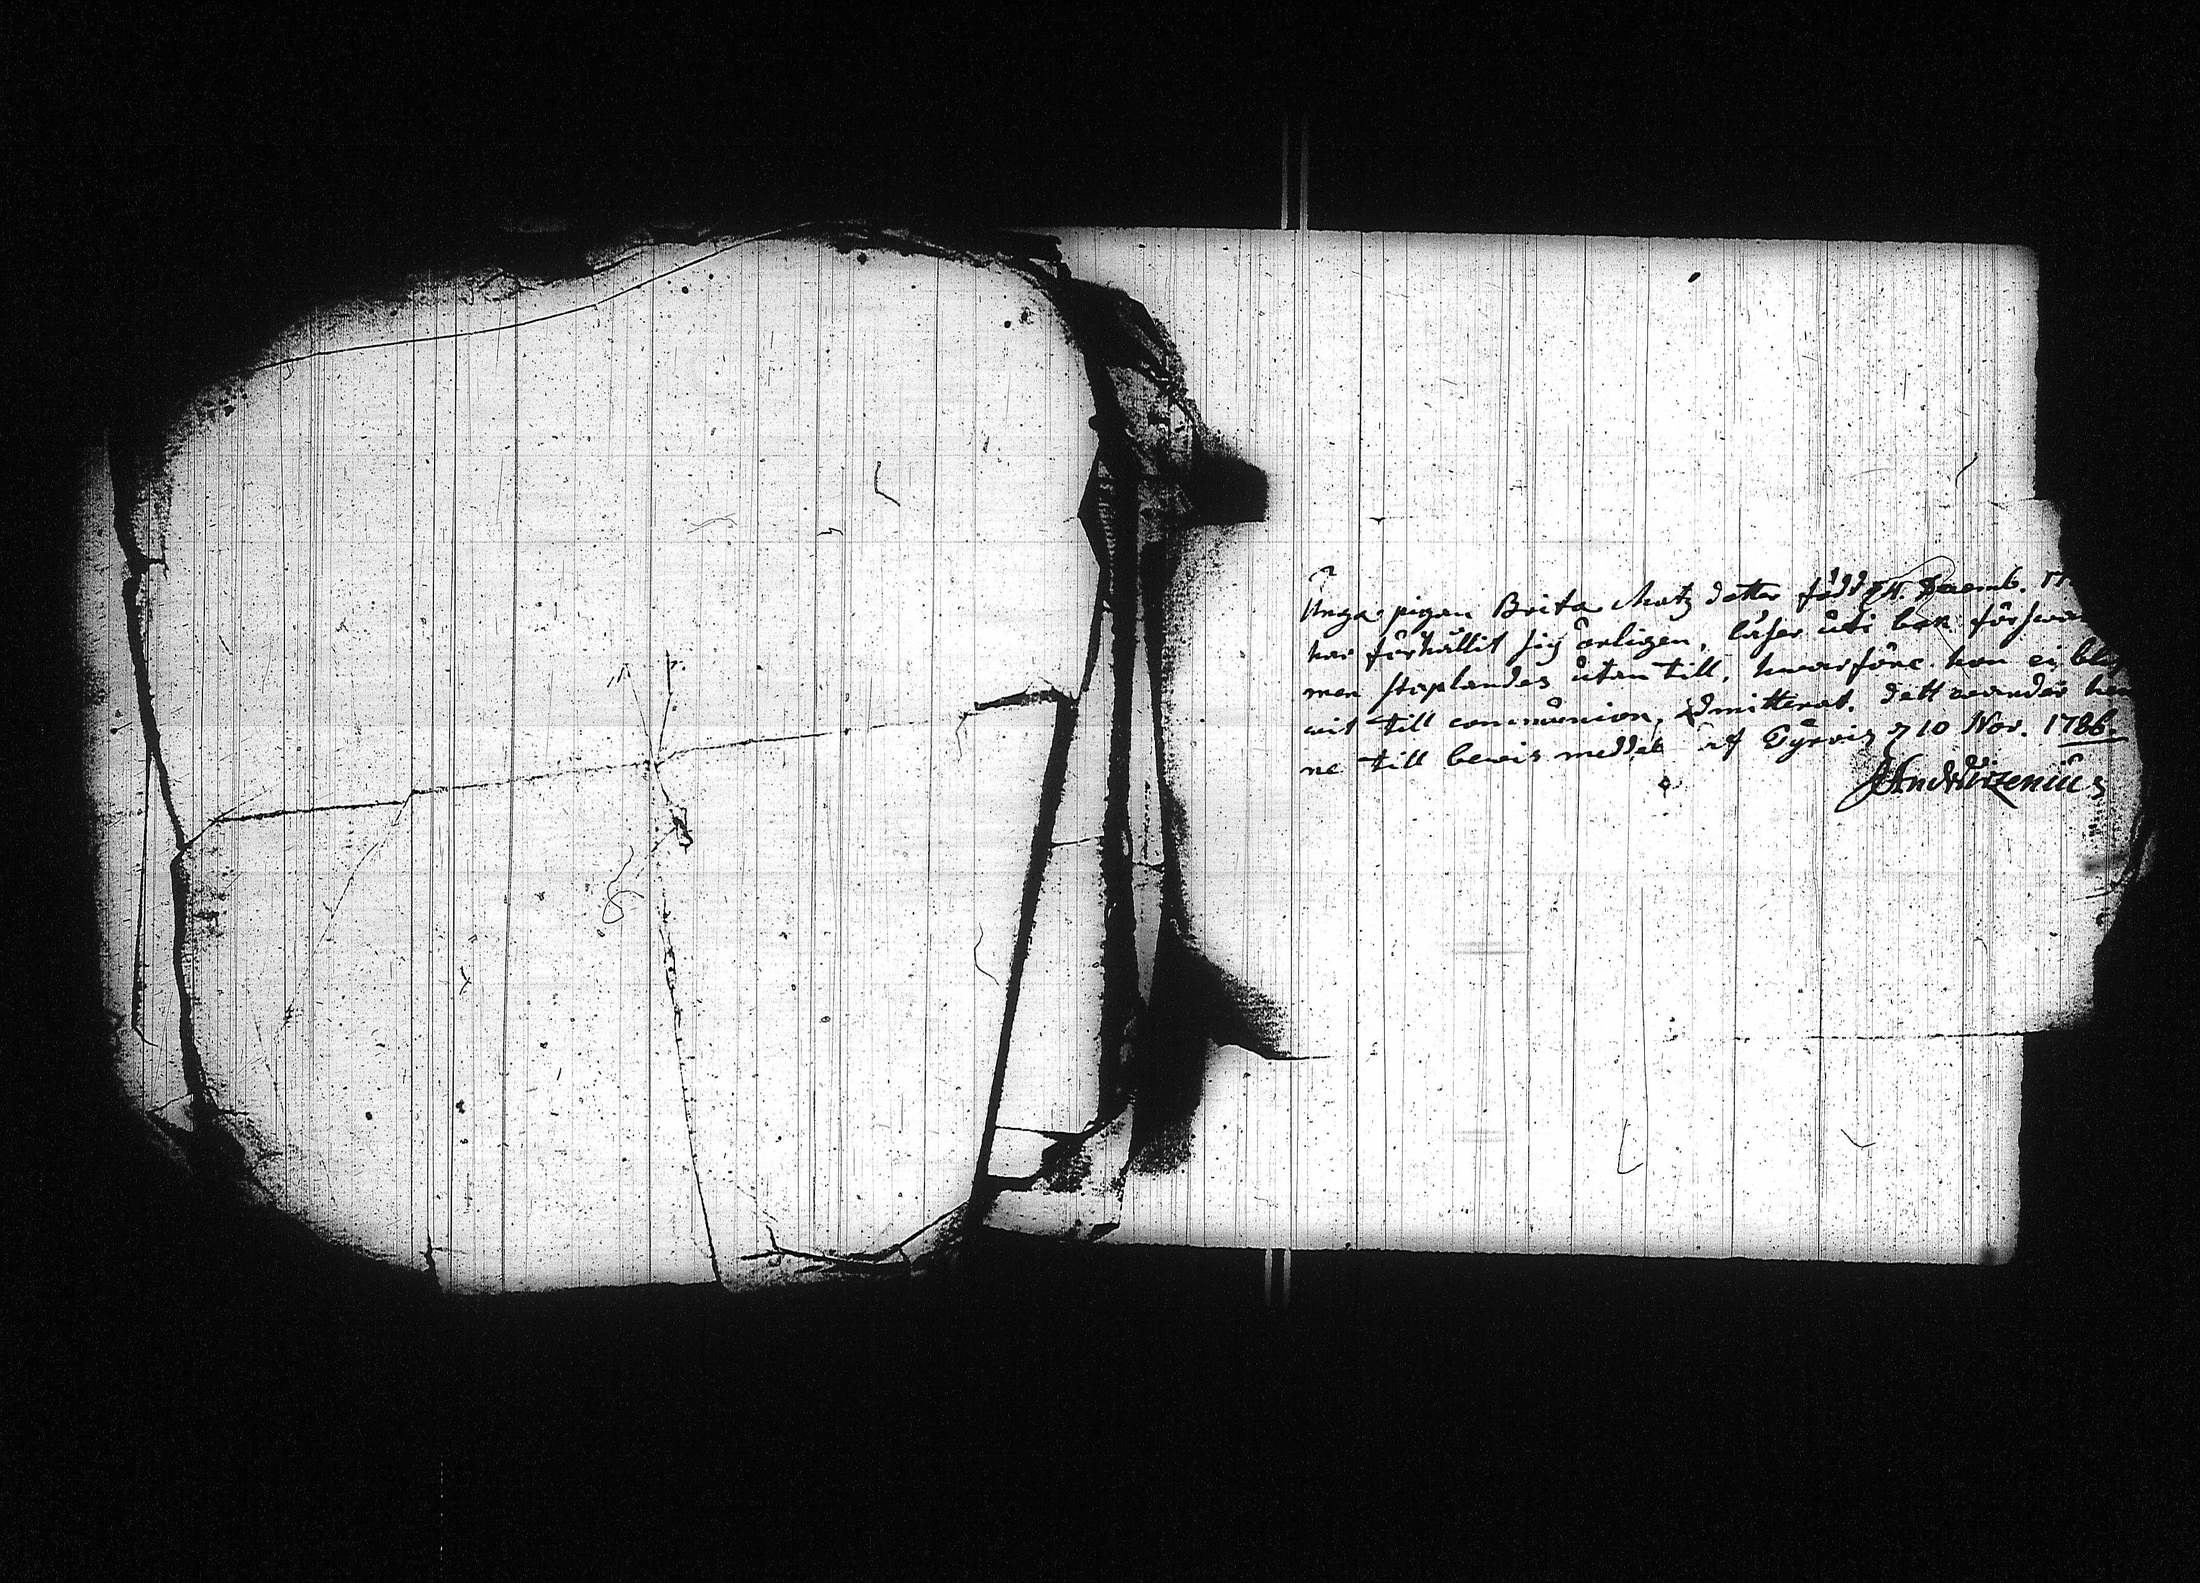 Unga pigan Brita Matz detter född 24. Decemb. 17
har förhållit sig ärligen, läser uti bok försvar
men staplandes utan till, hwarföre hon ej blif
wit till communion, admitterat. dett warder hen
ne till bewis meddelt af Gyrvis d 10 Nov. 1786.
And Wirzenius